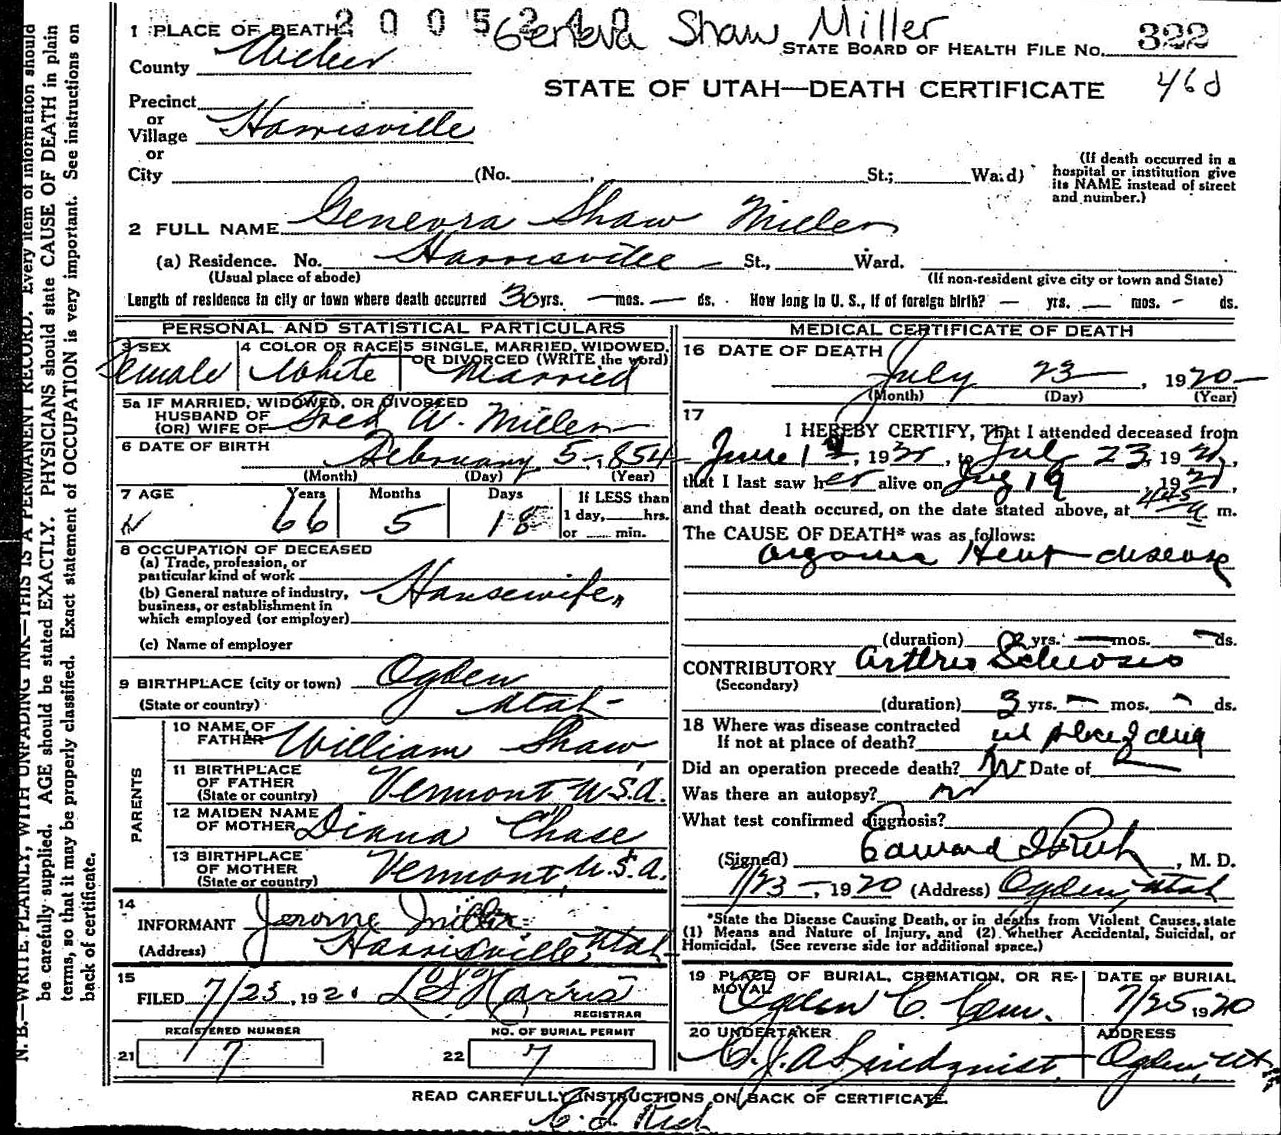 2005240
Geneva Shaw Miller
1 PLACE OF DEATH
STATE BOARD OF HEALTH FILE No. 322
County Weber
STATE OF UTAH—DEATH CERTIFICATE 46d
Precinct
or
Village Harrisville
or
City (No. , St.; Ward)
(If death occurred in a
hospital or institution give
its NAME instead of street
and number.)
2 FULL NAME Genevra Shaw Miller
(a) Residence. No. Harrisville St., Ward.
(Usual place of abode) (If non-resident give city or town and State)
Length of residence in city or town where death occurred 30 yrs. — mos. — ds. How long in U. S., if of foreign birth? — yrs. — mos. - ds.
PERSONAL AND STATISTICAL PARTICULARS
3 SEX Female
4 COLOR OR RACE White
5 SINGLE, MARRIED, WIDOWED,
OR DIVORCED (WRITE the word)
Married
5a IF MARRIED, WIDOWED, OR DIVORCED
HUSBAND OF
(OR) WIFE OF Fred W. Miller
6 DATE OF BIRTH February 5-1854
(Month) (Day) (Year)
7 AGE Years 66 Months 5 Days 18
If LESS than
1 day, hrs.
or min.
8 OCCUPATION OF DECEASED
(a) Trade, profession, or
particular kind of work
Housewife
(b) General nature of industry,
business, or establishment in
which employed (or employer)
(c) Name of employer
9 BIRTHPLACE (city or town) Ogden
(State or country) Utah
PARENTS
10 NAME OF
FATHER William Shaw
11 BIRTHPLACE
OF FATHER
(State or country) Vermont U.S.A.
12 MAIDEN NAME
OF MOTHER Diana Chase
13 BIRTHPLACE
OF MOTHER
(State or country) Vermont, U.S.A.
14
INFORMANT Jerome Miller
(Address) Harrisville, Utah
15
FILED 7/23, 192 L F Harris
REGISTRAR
REGISTERED NUMBER NO. OF BURIAL PERMIT
21 7 22 7
MEDICAL CERTIFICATE OF DEATH
16 DATE OF DEATH
July 23, 1920
(Month) (Day) (Year)
17
I HEREBY CERTIFY, That I attended deceased from
June 1st, 1920, to July 23, 1920,
that I last saw her alive on July 19, 1920,
and that death occured, on the date stated above, at 445 a m.
The CAUSE OF DEATH* was as follows:
organic Heart disease
(duration) 2 yrs. — mos. — ds.
CONTRIBUTORY Arterio Sclerosis
(Secondary)
(duration) 3 yrs. - mos. - ds.
18 Where was disease contracted
If not at place of death? at place of death
Did an operation precede death? No Date of
Was there an autopsy? no
What test confirmed diagnosis?
(Signed) Edward I Rich, M. D.
7/23-, 1920 (Address) Ogden Utah
*State the Disease Causing Death, or in deaths from Violent Causes, state
(1) Means and Nature of Injury, and (2) whether Accidental, Suicidal, or
Homicidal. (See reverse side for additional space.)
19 PLACE OF BURIAL, CREMATION, OR RE-
MOVAL Ogden C. Cem.
DATE OF BURIAL
7/25 1920
20 UNDERTAKER
C. J. A Lindquist
ADDRESS
Ogden, Ut
READ CAREFULLY INSTRUCTIONS ON BACK OF CERTIFICATE.
N. B.—WRITE PLAINLY, WITH UNFADING INK—THIS IS A PERMANENT RECORD. Every item of information should
be carefully supplied. AGE should be stated EXACTLY. PHYSICIANS should state CAUSE OF DEATH in plain
terms, so that it may be properly classified. Exact statement of OCCUPATION is very important. See instructions on
back of certificate.